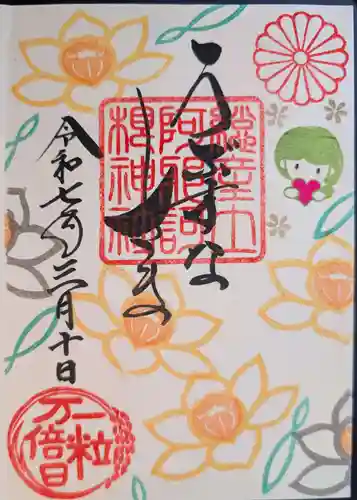 うぶすな
總産土
阿邪訶
根神社
令和七年三月十日
一粒
万倍日